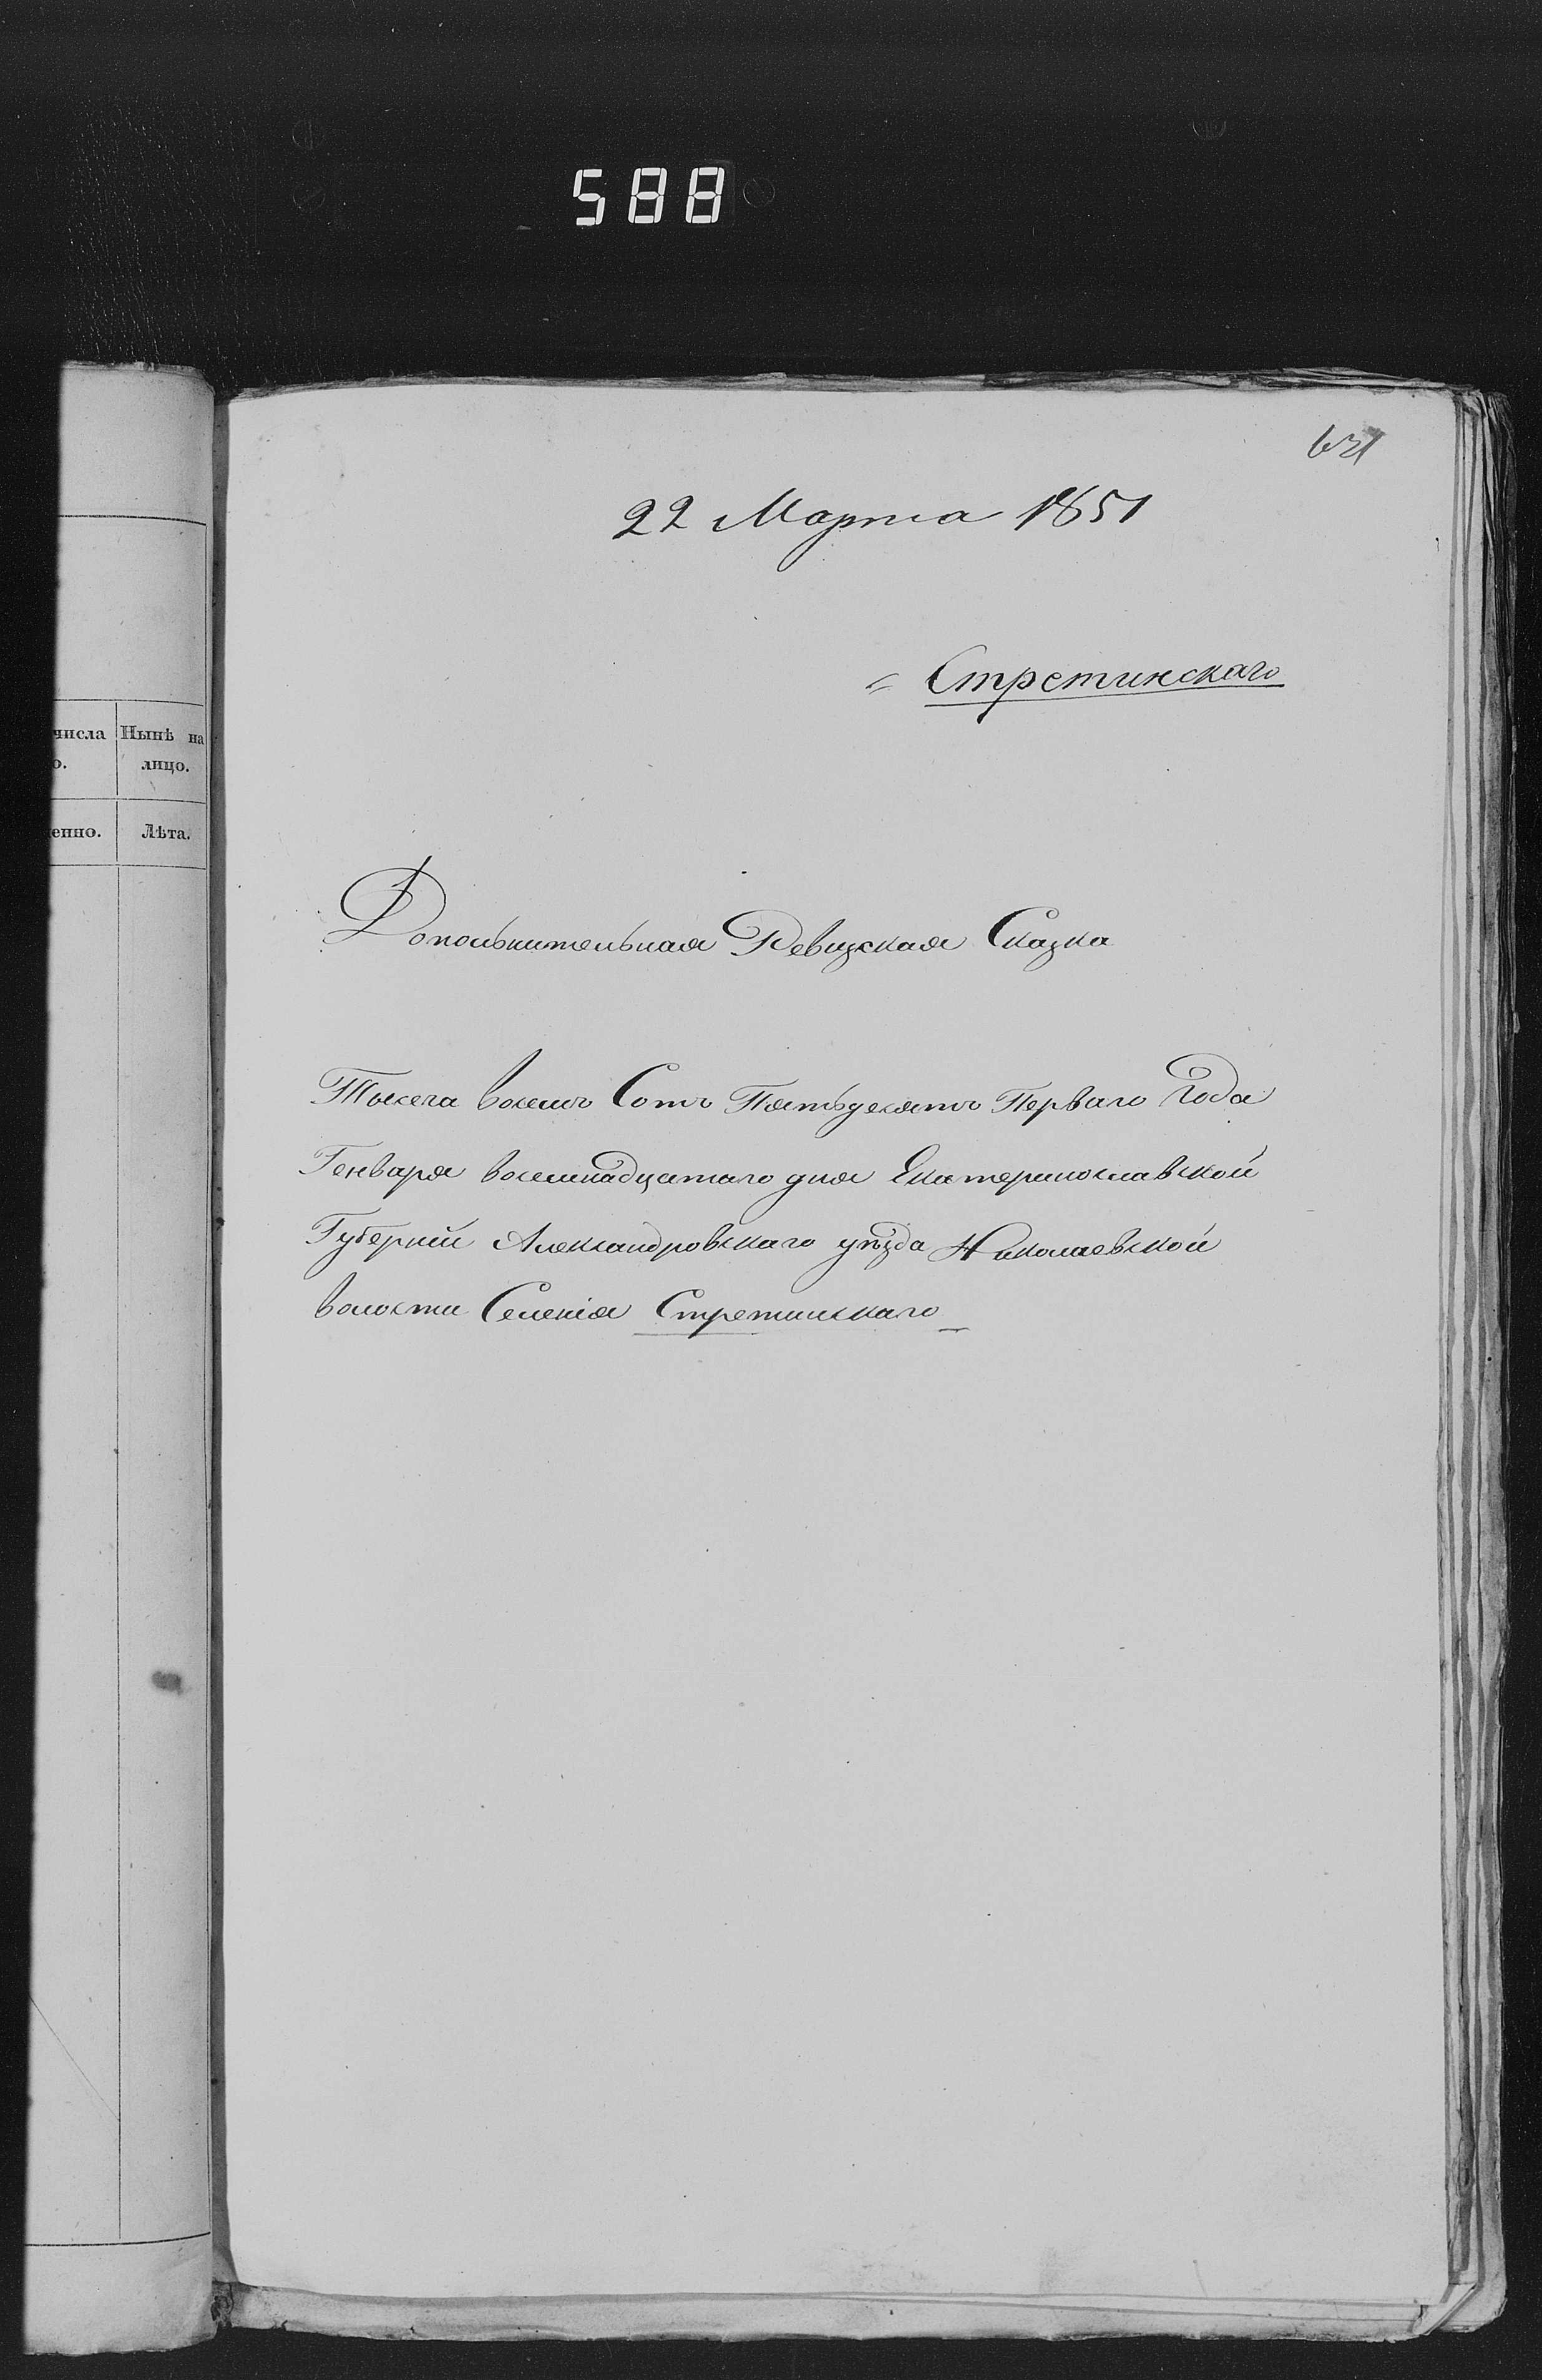 588
631
22 Марта 1851
Стретинскаго
Допольнительная Ревизская Сказка
Тысеча восемъ Сотъ Пятьдесятъ Перваго Года
Генваря восемнадцатаго дня Екатеринославской
Губерніи Александровскаго уѣзда Николаевской
волости Селенія Стретинскаго
числа Нынѣ на
о. лицо.
енно. Лѣта.